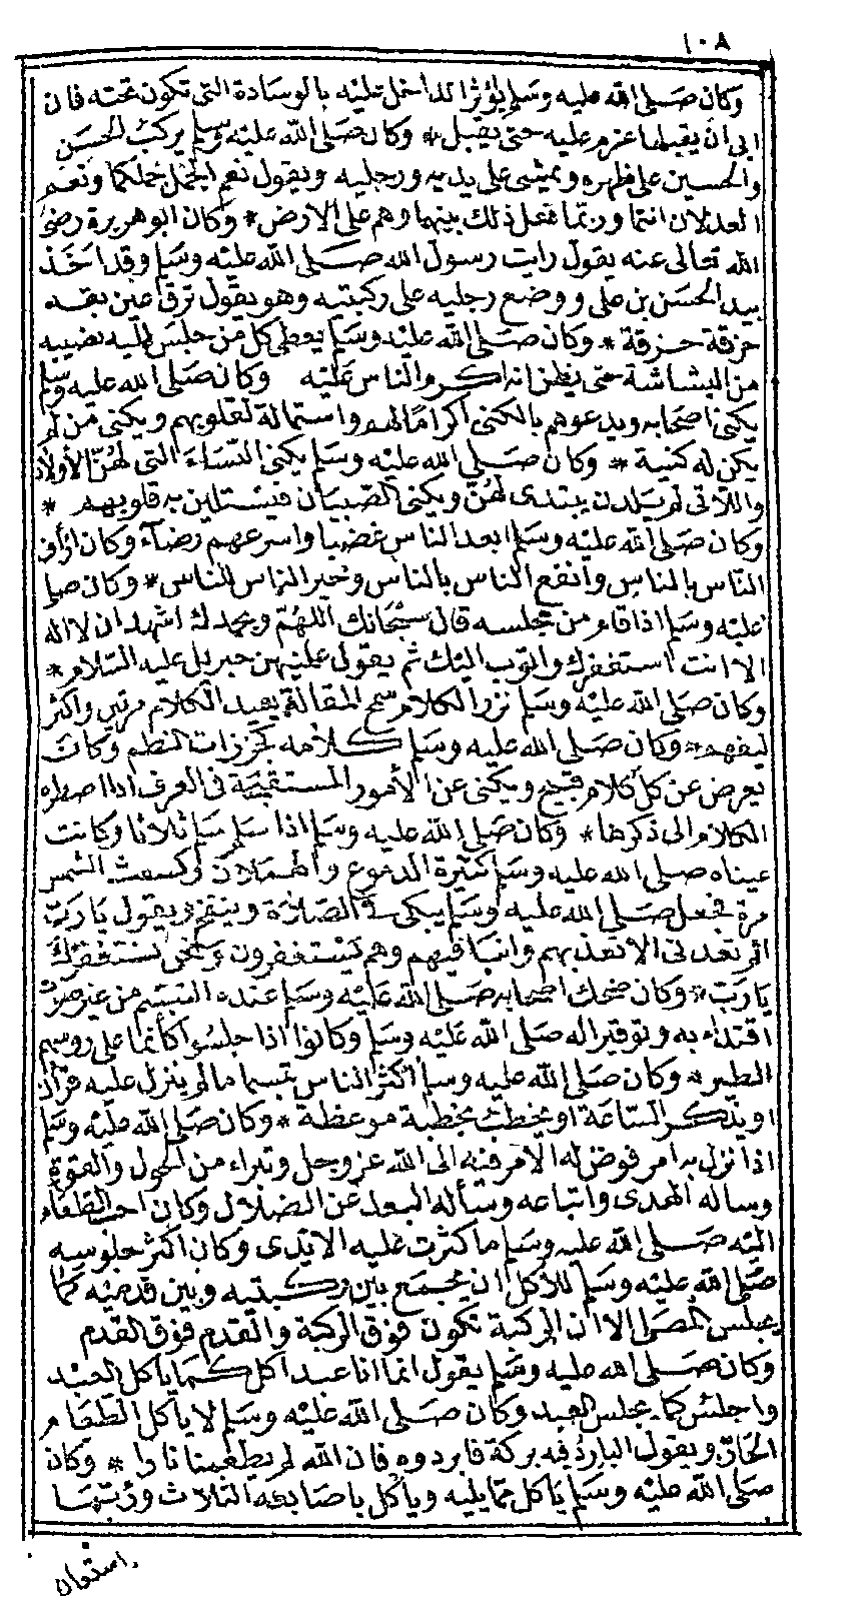 ١٠٨
وكان صلى الله عليه وسلم يؤثر الداخل عليه بالوسادة التى تكون تحته فان
ابى ان يقبلها عزم عليه حتى يقبل * وكان صلى الله عليه وسلم يركب الحسن
والحسين على ظهره ويمشى على يديه ورجليه ويقول نعم الجمل جملكما ونعم
العدلان انتما وربما فعل ذلك بينهما وهم على الارض * وكان ابو هريرة رضى
الله تعالى عنه يقول رايت رسول الله صلى الله عليه وسلم وقد اخذ
بيد الحسن بن على ووضع رجليه على ركبتيه وهو يقول ترق عين بقه
حزقة حزقة * وكان صلى الله عليه وسلم يعطى كل من جلس اليه نصيبه
من البشاشة حتى يظن انه اكرم الناس عليه وكان صلى الله عليه وسلم
يكنى اصحابه ويدعوهم بالكنى اكراما لهم واستمالة لقلوبهم ويكنى من لم
يكن له كنية * وكان صلى الله عليه وسلم يكنى النساء التى لهن الأولاد
واللاتى لم يلدن يبتدى لهن ويكنى الصبيان فيستلين به قلوبهم *
وكان صلى الله عليه وسلم ابعد الناس غضبا واسرعهم رضاء وكان ارأف
الناس بالناس وانفع الناس بالناس وخير الناس للناس * وكان صلى
عليه وسلم اذا قام من مجلسه قال سبحانك اللهم وبحمدك اشهد ان لا اله
الا انت استغفرك واتوب اليك ثم يقول علمنيهن جبريل عليه السلام *
وكان صلى الله عليه وسلم نزر الكلام سمح المقالة يعيد الكلام مرتين واكثر
ليفهم * وكان صلى الله عليه وسلم كلامه كخرزات النظم وكان
يعرض عن كل كلام قبيح ويكنى عن الأمور المستقبحة فى العرف اذا اضطره
الكلام الى ذكرها * وكان صلى الله عليه وسلم اذا سلم سلم ثلاثا وكانت
عيناه صلى الله عليه وسلم كثيرة الدموع والهملان وكسفت الشمس
مرة فجعل صلى الله عليه وسلم يبكى فى الصلاة وينفخ ويقول يا رب
الم تعدنى الا تعذبهم وانا فيهم وهم يستغفرون ونحن نستغفرك
يا رب * وكان ضحك اصحابه صلى الله عليه وسلم عنده التبسم من غير صوت
اقتداء به وتوقيرا له صلى الله عليه وسلم وكانوا اذا جلسوا كأنما على روسهم
الطير * وكان صلى الله عليه وسلم أكثر الناس تبسما ما لم ينزل عليه قرآن
او يذكر الساعة او يخطب بخطبة موعظة * وكان صلى الله عليه وسلم
اذا نزل به امر فوض له الامر فيه الى الله عز وجل وتبراء من الحول والقوة
وساله الهدى واتباعه وسأله البعد عن الضلال وكان احب الطعام
اليه صلى الله عليه وسلم ما كثرت عليه الايدى وكان اكثر جلوسه
صلى الله عليه وسلم للأكل ان يجمع بين ركبتيه وبين قدميه كما
يجلس المصلى الا ان الركبة تكون فوق الركبة والقدم فوق القدم
وكان صلى الله عليه وسلم يقول انما انا عبد اكل كما ياكل العبد
واجلس كما يجلس العبد وكان صلى الله عليه وسلم لا ياكل الطعام
الحار ويقول البارد فيه بركة فابردوه فان الله لم يطعمنا نارا * وكان
صلى الله عليه وسلم ياكل مما يليه وياكل باصابعه الثلاث وربما
استعان